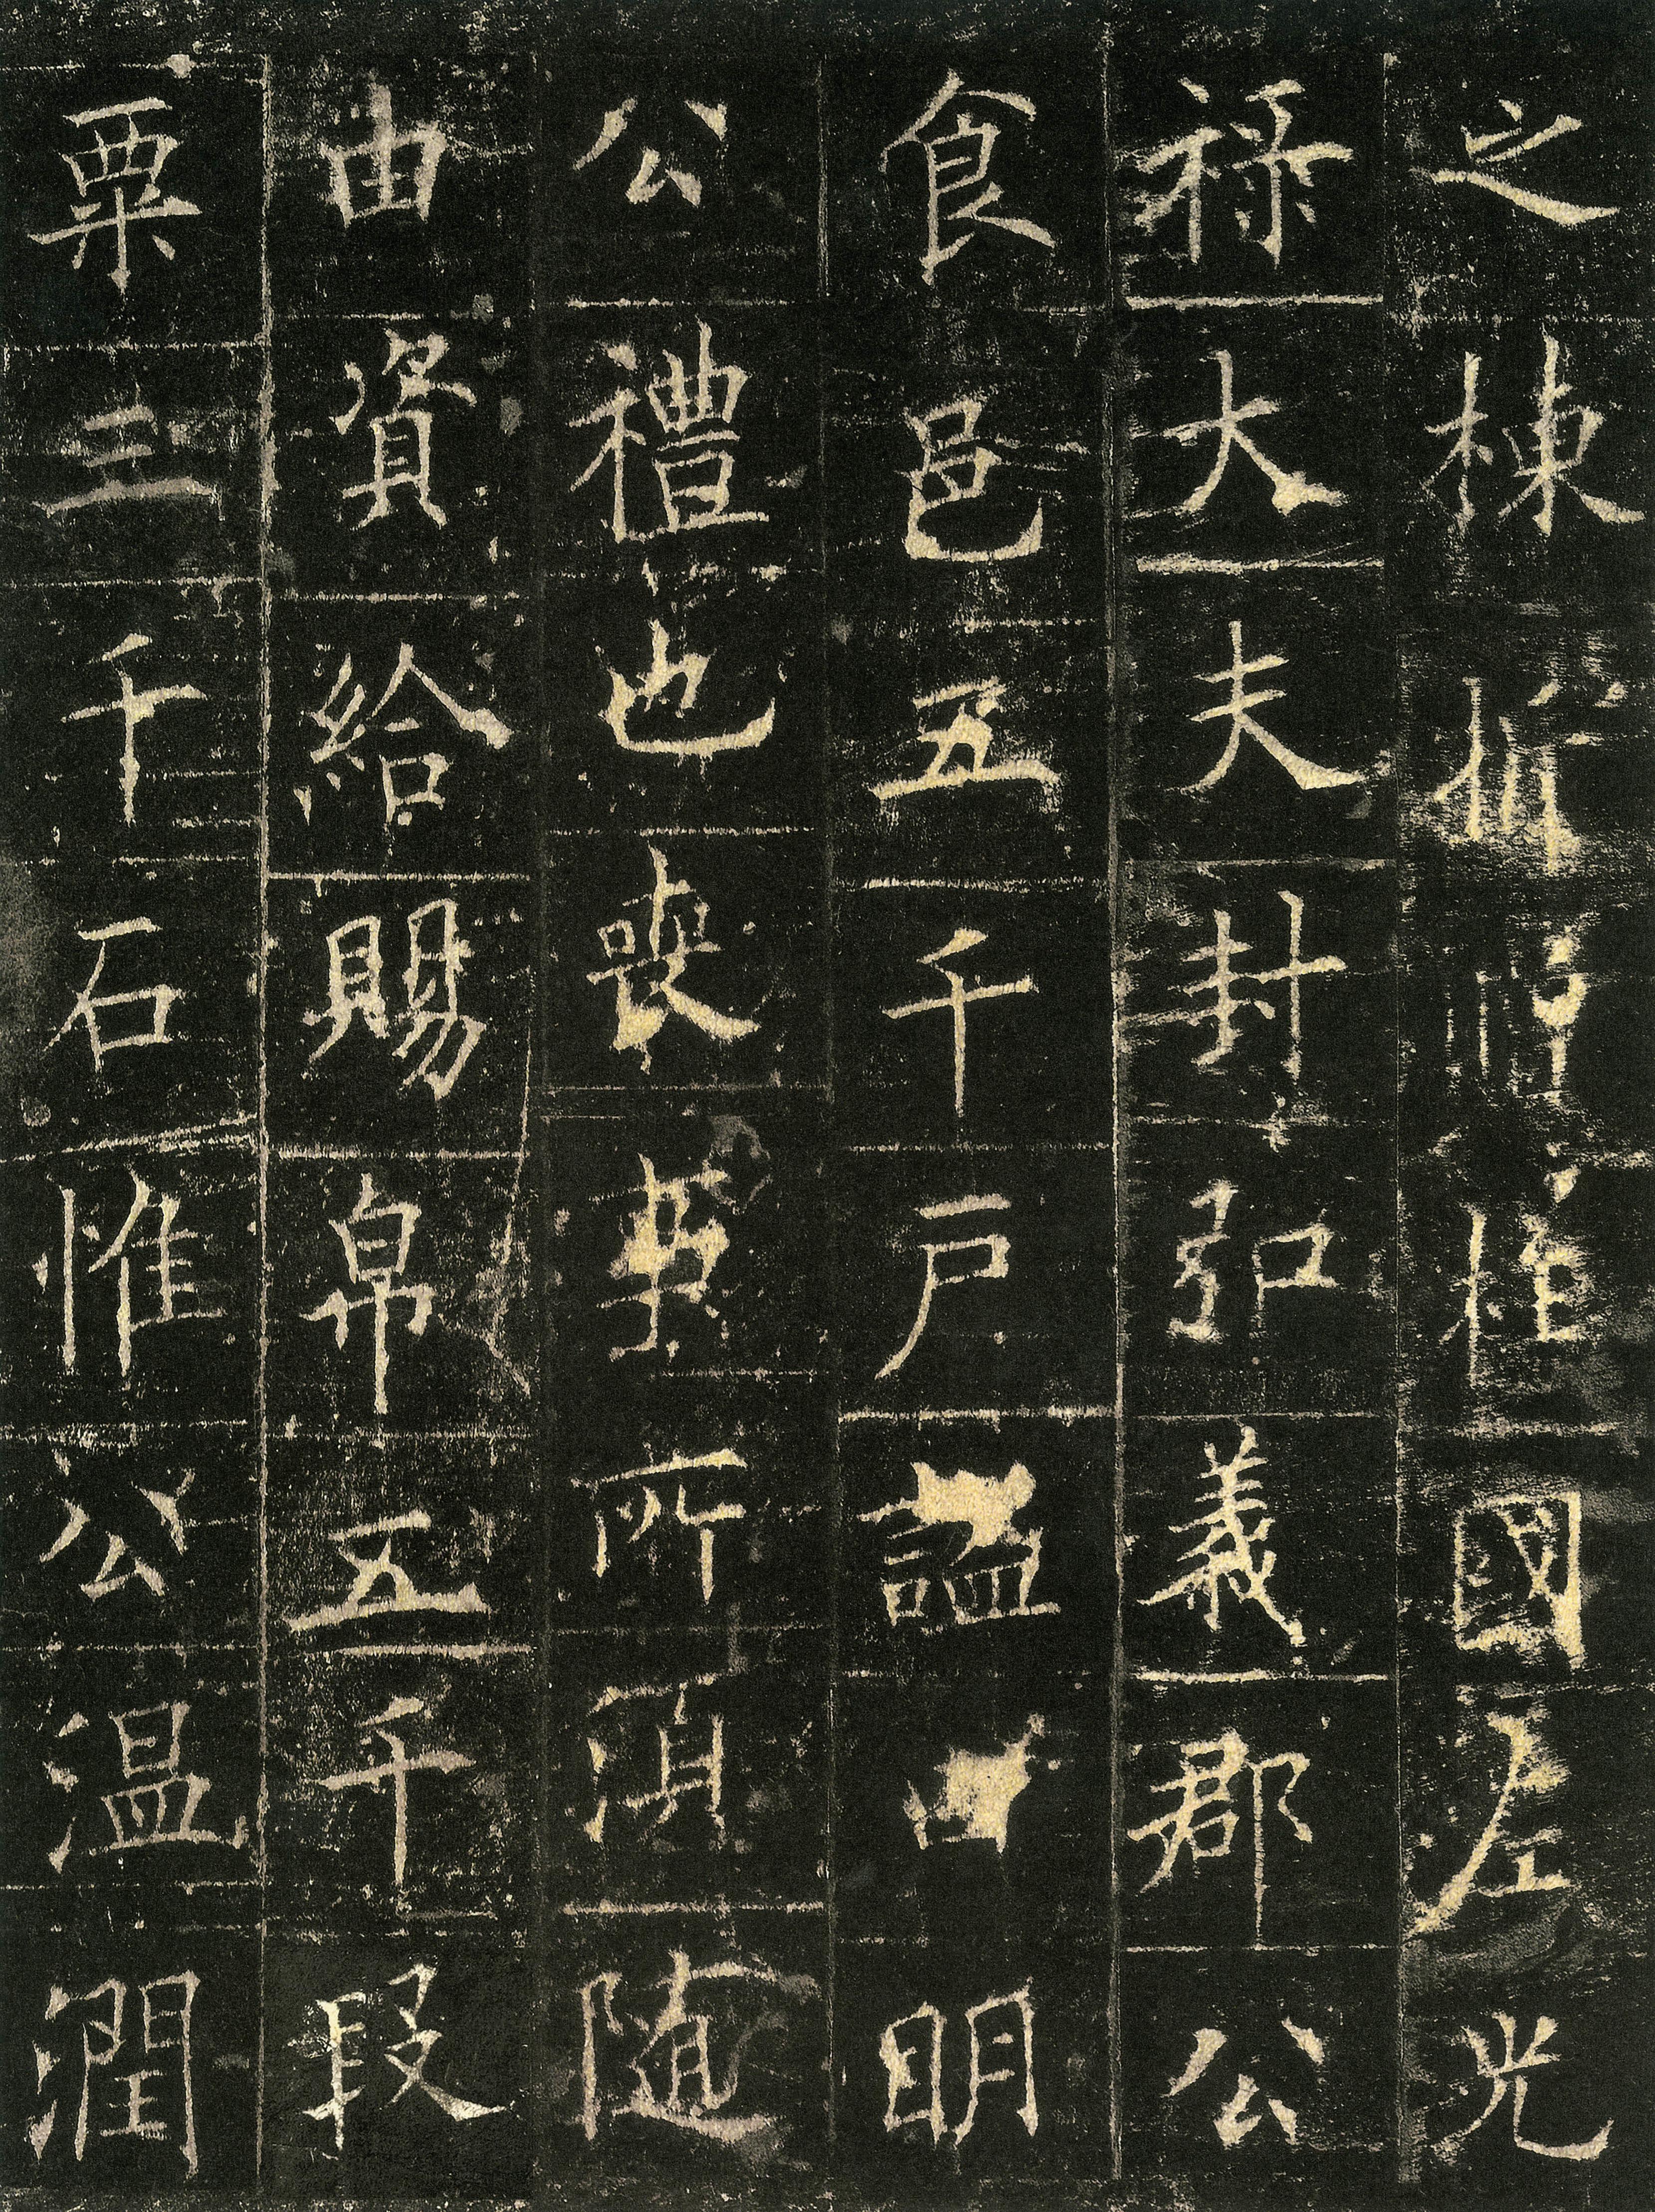 之棟贈柱國左光
祿大夫封弘義郡公
食邑五千戶謚曰明
公禮也喪事所須随
由資給賜帛五千段
粟三千石惟公溫潤